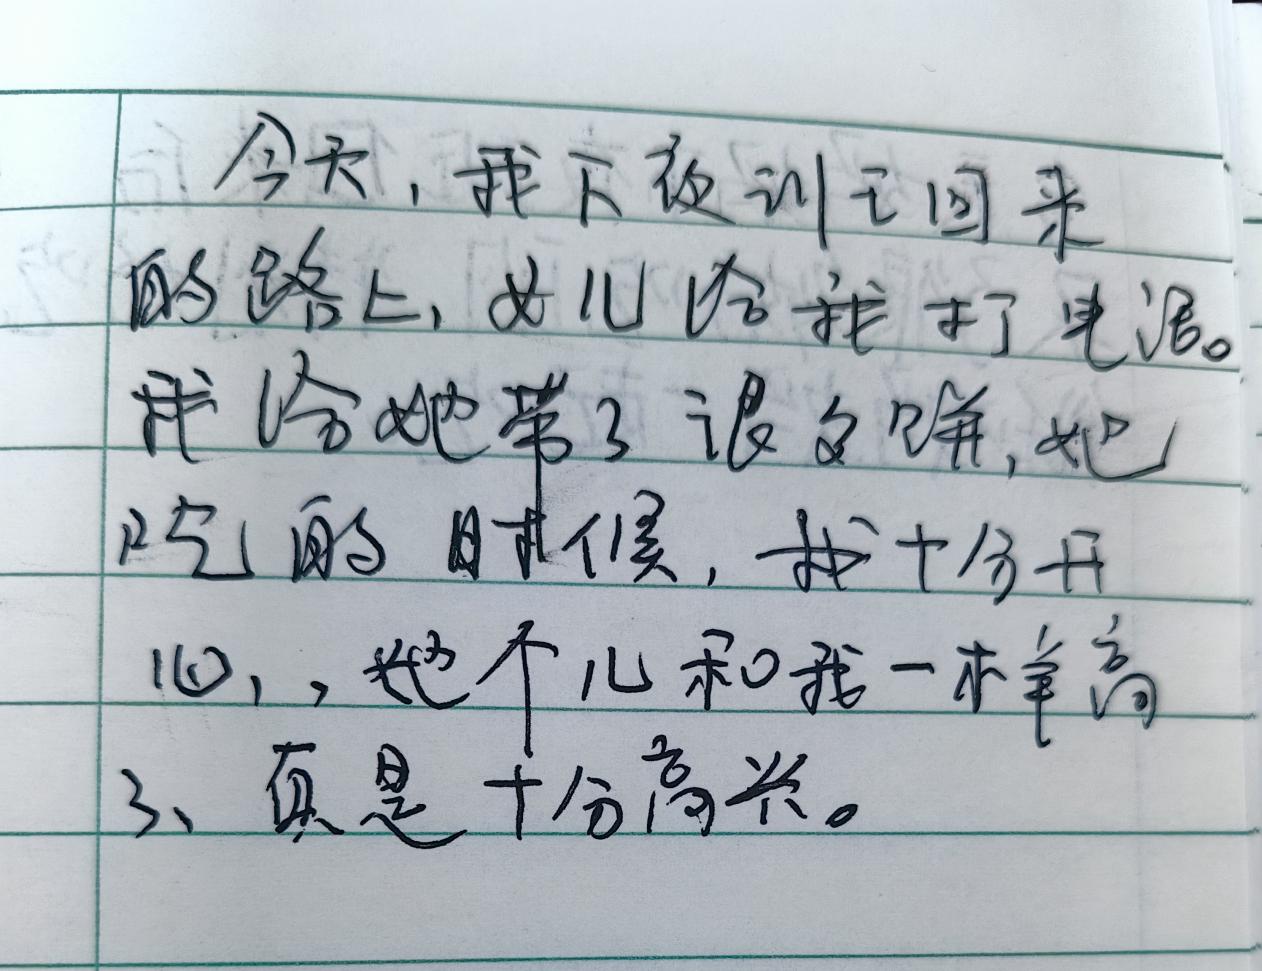 今天，我下夜训王回来
的路上，女儿给我打电话。
我给她带了很多饼，她
吃的时候，我十分开
心，，她个儿和我一样高
了、真是十分高兴。